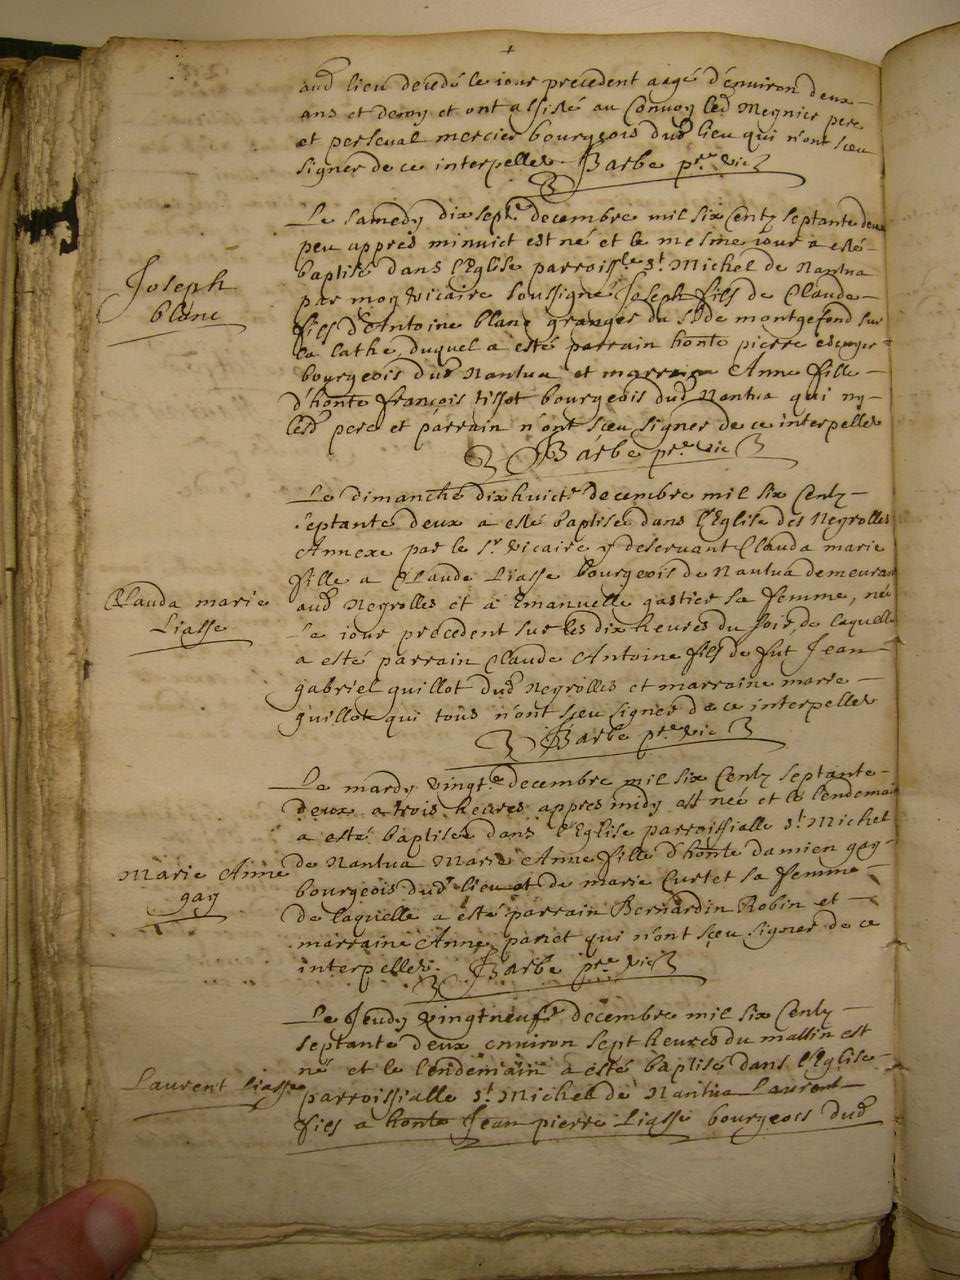 +
aud lieu decedé le iour precedent aagé d'environ deux
ans et demy et ont assisté au Convoy led Meynier pere
et perseval mercier bourgeois dud lieu qui n'ont sceu
signer de ce interpellés Barbe ptre vic
Joseph
blanc
Le samedy dix sept decembre mil six Centz septante deux
peu appres minuict est né et le mesme iour a esté
baptisé dans l'Eglise parroissle st Michel de Nantua
par moy vicaire soussigné Joseph fils de Claude
fils d'Antoine blanc granger du sr de montgefond sur
la lathe, duquel a esté parrain honte pierre
bourgeois dud Nantua et marraine Anne fille
d'honte françois tissot bourgeois dud Nantua qui ny
lesd pere et parrain n'ont sceu signer de ce interpellés
Barbe ptre vic
Clauda marie
Liasse
Le dimanche dix huict decembre mil six Centz
septante deux a esté baptisé dans l'Eglise des Neyrolles
Annexe par le sr vicaire y deservant Clauda marie
fille a Claude Liasse bourgeois de Nantua demeurant
aud Neyrolles et a Emanuelle gastier sa femme, née
Le iour precedent sur les dix heures du soir, de laquelle
a esté parrain Claude Antoine fils de fut Jean
gabriel guillot dud Neyrolles et marraine marie
guillot qui tous n'ont sceu signer de ce interpellés
Barbe ptre vic
Marie Anne
gay
Le mardy vingte decembre mil six Centz septante
deux a trois heures appres midy est née et le lendemain
a esté baptisée dans l'Eglise parroissialle st Michel
de Nantua Marie Anne fille d'honte damien gay
bourgeois dud lieu et de marie Curtet sa femme
de laquelle a esté parrain Bernardin Robin et
marraine Anne pariet qui n'ont sceu signer de ce
interpellés. Barbe ptre vic
Laurent liasse
Le Jeudy vingtneuf decembre mil six Centz
septante deux environ sept heures du mattin est
né et le lendemain a esté baptisé dans l'Eglise
parroissialle st Michel de Nantua Laurent
fils a honte Jean pierre Liasse bourgeois dud